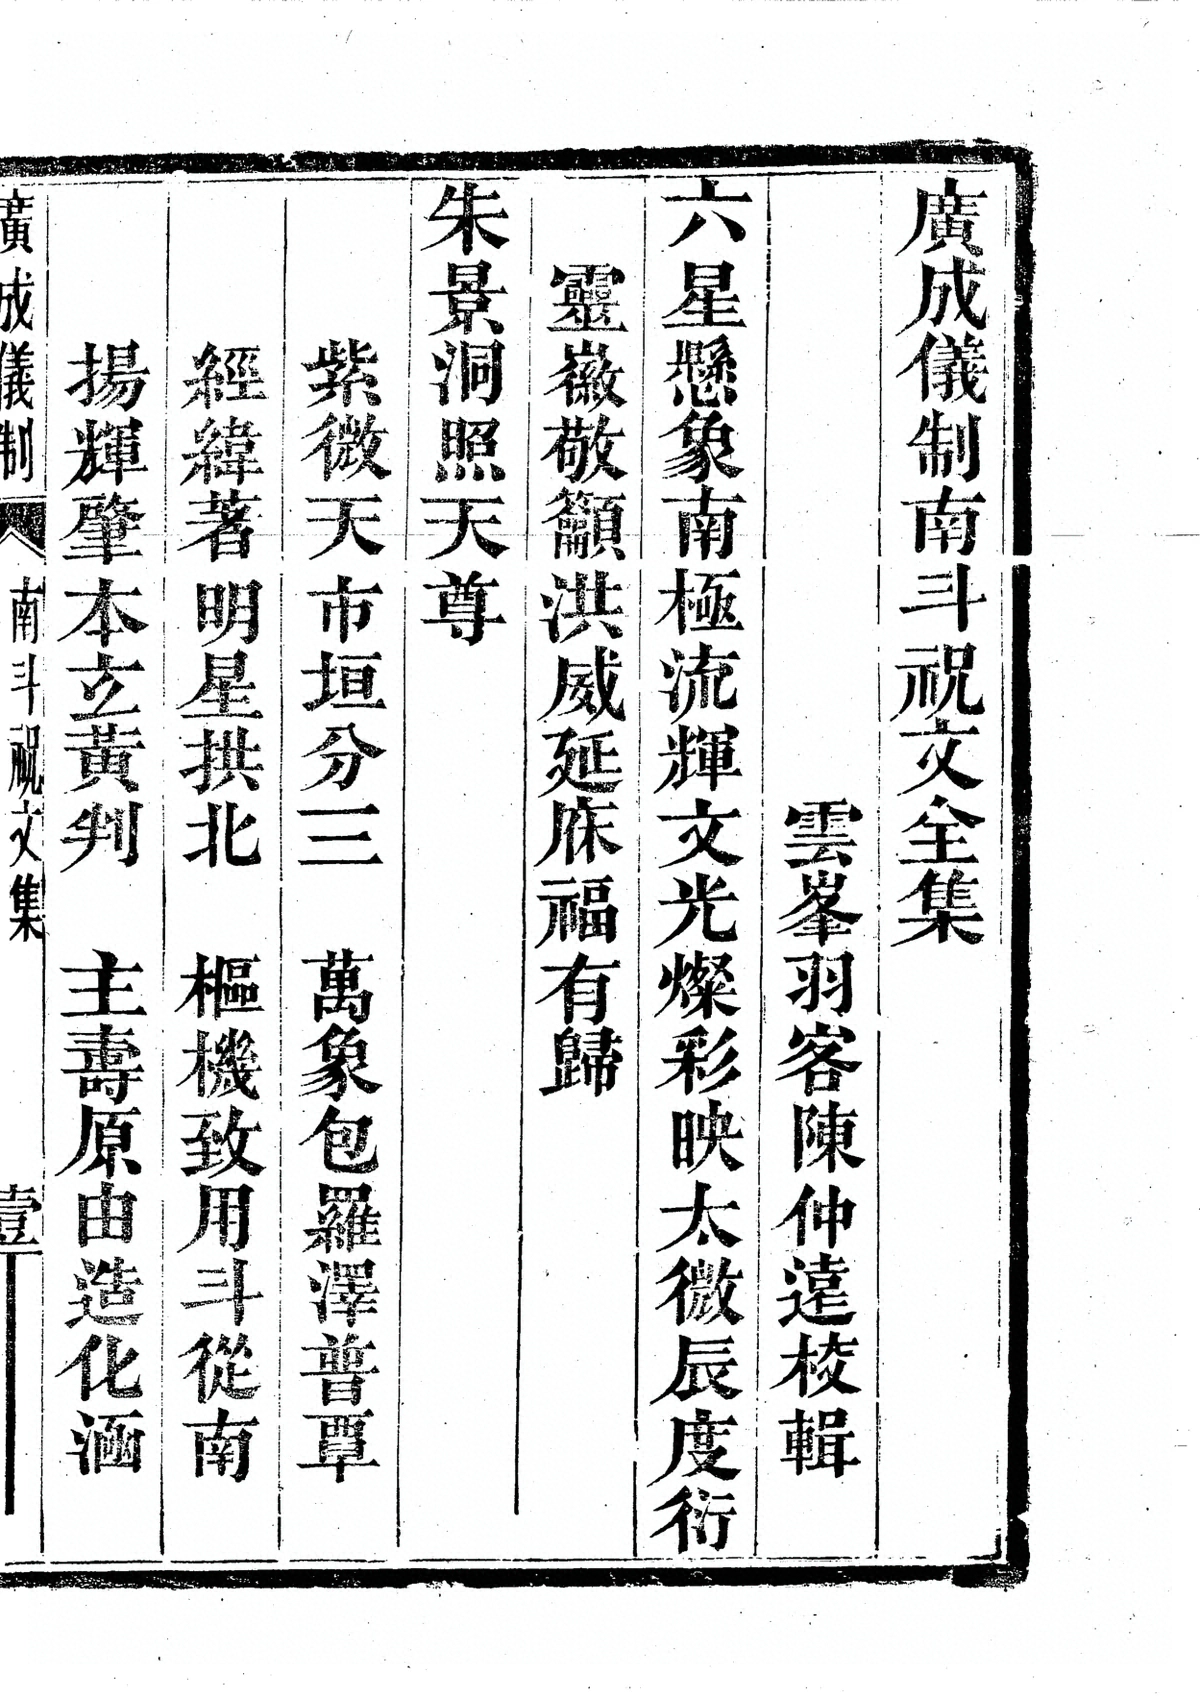 廣成儀制南斗祝文全集
雲峯羽客陳仲遠校輯
六星懸象南極流輝文光燦彩映太微辰度衍
靈徽敬籲洪威延庥福有歸
朱景洞照天尊
紫微天市垣分三　萬象包羅澤普覃
經緯著明星拱北　樞機致用斗從南
揚輝肇本玄黃判　主壽原由造化涵
廣成儀制　南斗祝文集　壹